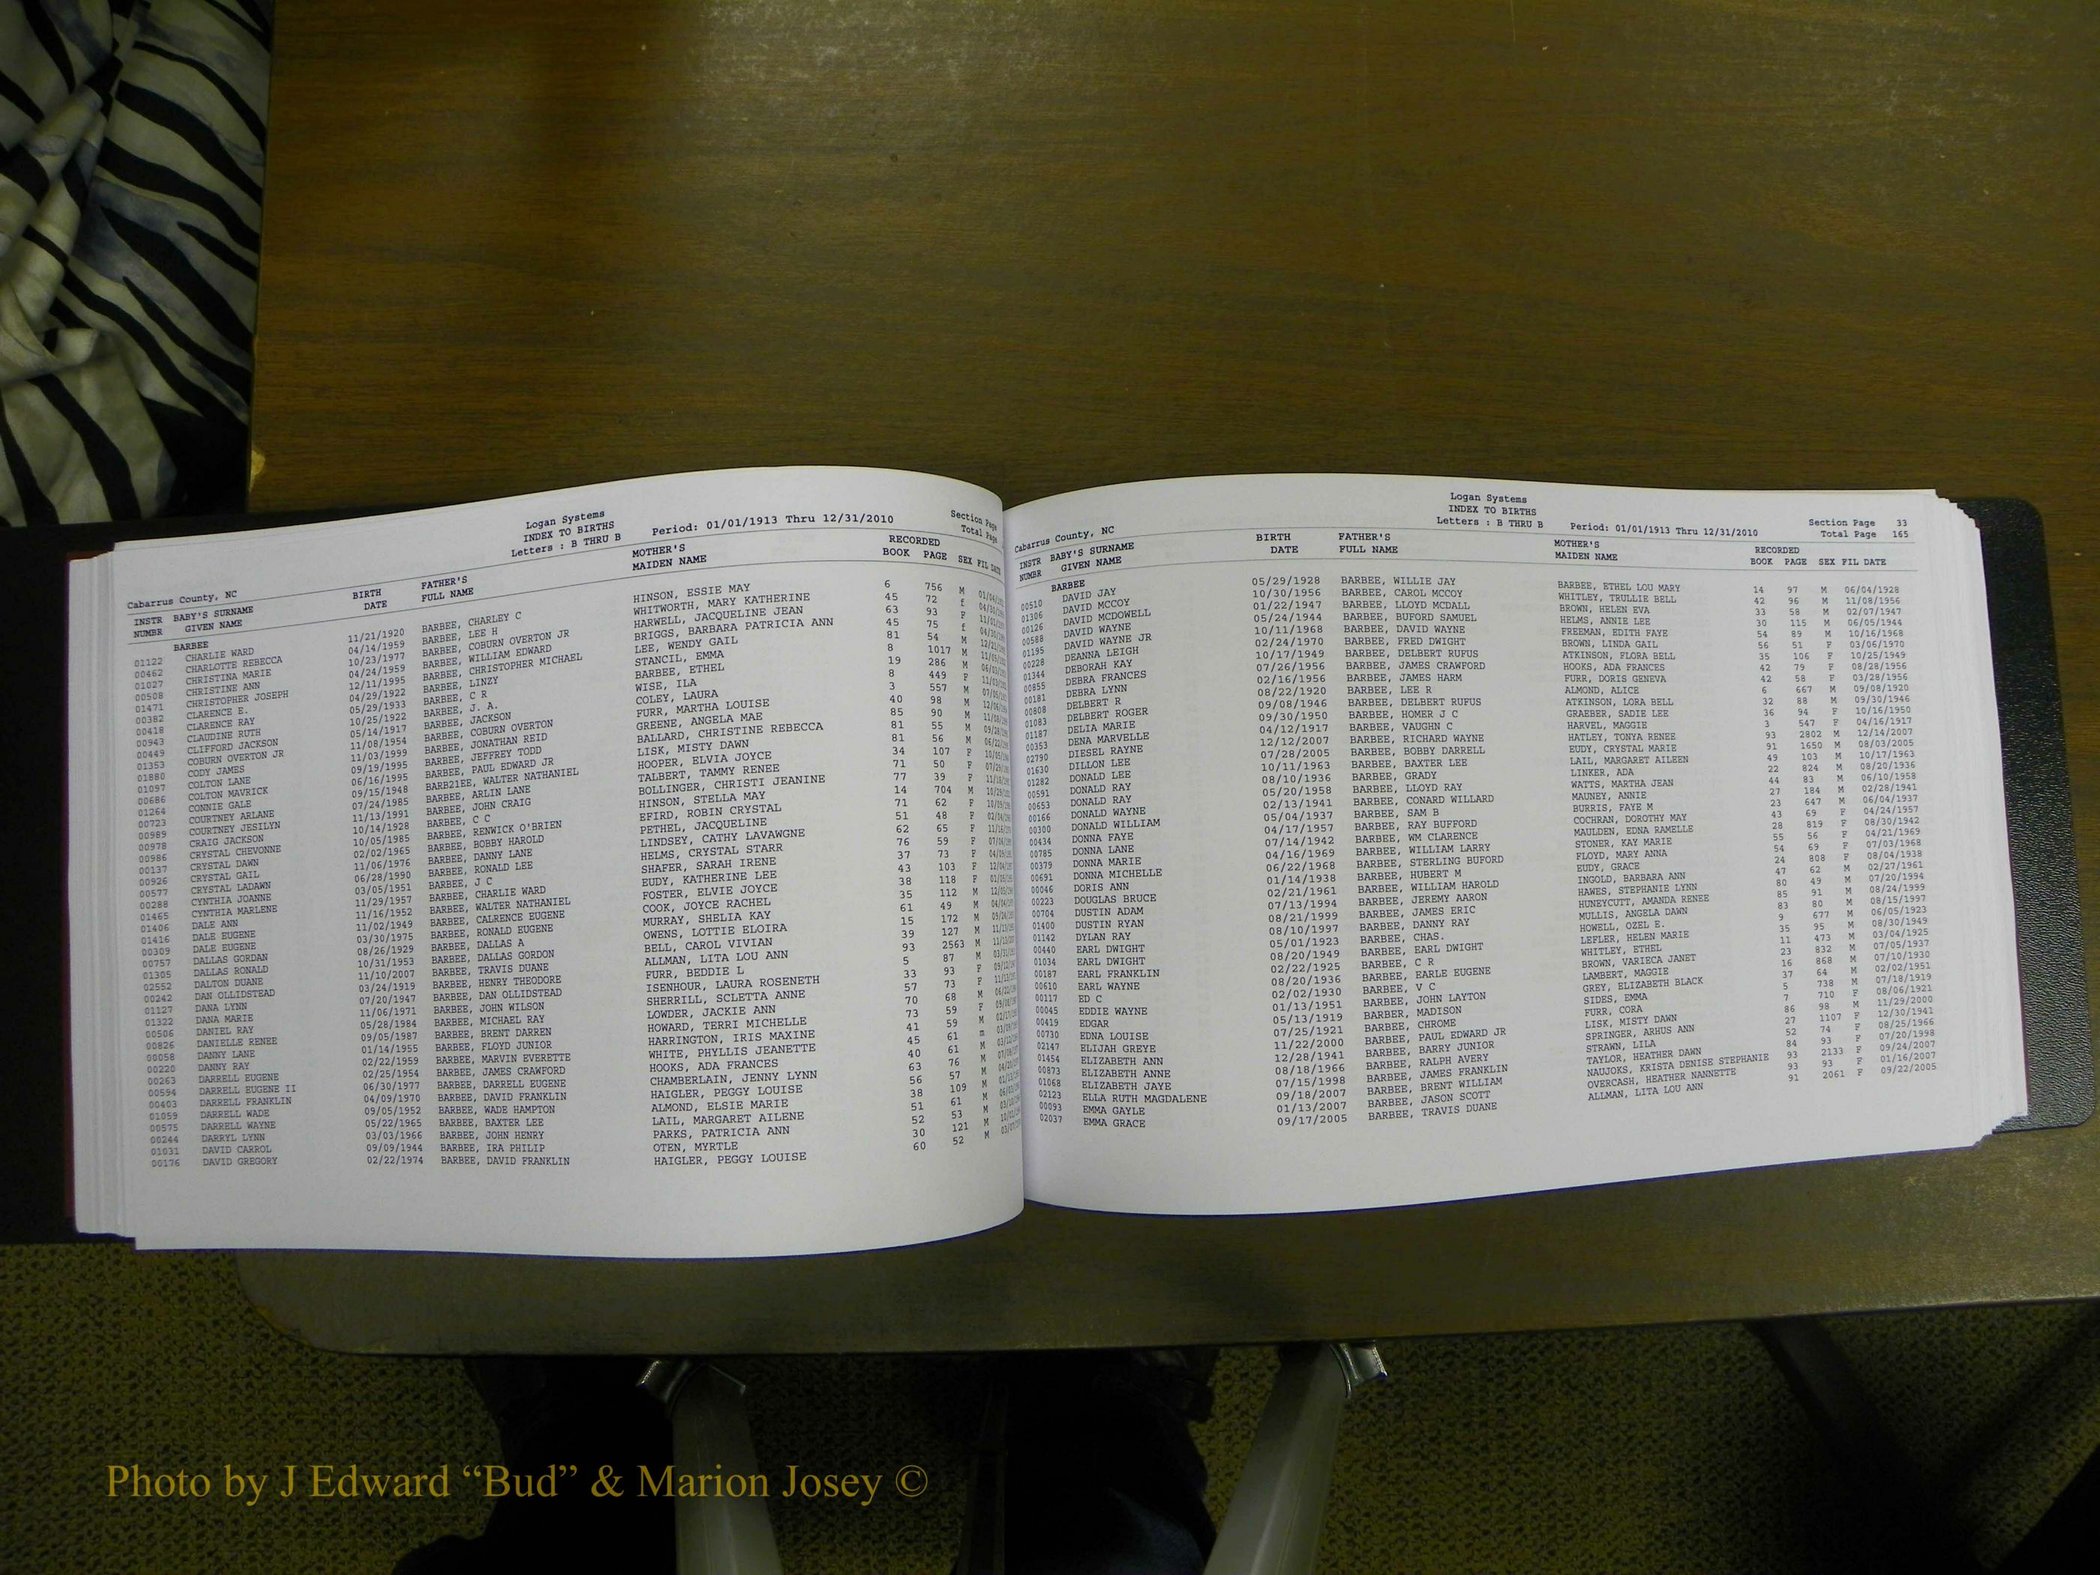 Logan Systems
INDEX TO BIRTHS
Letters : B THRU B
Period: 01/01/1913 Thru 12/31/2010
Section Page
Total Page
Cabarrus County, NC
INSTR BABY'S SURNAME BIRTH FATHER'S MOTHER'S RECORDED
NUMBR GIVEN NAME DATE FULL NAME MAIDEN NAME BOOK PAGE SEX FIL DATE
BARBEE
01122 CHARLIE WARD 11/21/1920 BARBEE, CHARLEY C HINSON, ESSIE MAY 6 756 M
00462 CHARLOTTE REBECCA 04/14/1959 BARBEE, LEE H WHITWORTH, MARY KATHERINE 45 72 f
01027 CHRISTINA MARIE 10/23/1977 BARBEE, COBURN OVERTON JR HARWELL, JACQUELINE JEAN 63 93 F
00508 CHRISTINE ANN 04/24/1959 BARBEE, WILLIAM EDWARD BRIGGS, BARBARA PATRICIA ANN 45 75 f
01471 CHRISTOPHER JOSEPH 12/11/1995 BARBEE, CHRISTOPHER MICHAEL LEE, WENDY GAIL 81 54 M
00382 CLARENCE E. 04/29/1922 BARBEE, LINZY STANCIL, EMMA 8 1017 M
00418 CLARENCE RAY 05/29/1933 BARBEE, C R BARBEE, ETHEL 19 286 M
00943 CLAUDINE RUTH 10/25/1922 BARBEE, J. A. WISE, ILA 8 449 F
00449 CLIFFORD JACKSON 05/14/1917 BARBEE, JACKSON COLEY, LAURA 3 557 M
01353 COBURN OVERTON JR 11/08/1954 BARBEE, COBURN OVERTON FURR, MARTHA LOUISE 40 98 M
01880 CODY JAMES 11/03/1999 BARBEE, JONATHAN REID GREENE, ANGELA MAE 85 90 M
01097 COLTON LANE 09/19/1995 BARBEE, JEFFREY TODD BALLARD, CHRISTINE REBECCA 81 55 M
00686 COLTON MAVRICK 06/16/1995 BARBEE, PAUL EDWARD JR LISK, MISTY DAWN 81 56 M
01264 CONNIE GALE 09/15/1948 BARB21EE, WALTER NATHANIEL HOOPER, ELVIA JOYCE 34 107 F
00723 COURTNEY ARLANE 07/24/1985 BARBEE, ARLIN LANE TALBERT, TAMMY RENEE 71 50 F
00989 COURTNEY JESILYN 11/13/1991 BARBEE, JOHN CRAIG BOLLINGER, CHRISTI JEANINE 77 39 F
00978 CRAIG JACKSON 10/14/1928 BARBEE, C C HINSON, STELLA MAY 14 704 M
00986 CRYSTAL CHEVONNE 10/05/1985 BARBEE, RENWICK O'BRIEN EFIRD, ROBIN CRYSTAL 71 62 F
00137 CRYSTAL DAWN 02/02/1965 BARBEE, BOBBY HAROLD PETHEL, JACQUELINE 51 48 F
00926 CRYSTAL GAIL 11/06/1976 BARBEE, DANNY LANE LINDSEY, CATHY LAVAWGNE 62 65 F
00577 CRYSTAL LADAWN 06/28/1990 BARBEE, RONALD LEE HELMS, CRYSTAL STARR 76 59 F
00288 CYNTHIA JOANNE 03/05/1951 BARBEE, J C SHAFER, SARAH IRENE 37 73 F
01465 CYNTHIA MARLENE 11/29/1957 BARBEE, CHARLIE WARD EUDY, KATHERINE LEE 43 103 F
01406 DALE ANN 11/16/1952 BARBEE, WALTER NATHANIEL FOSTER, ELVIE JOYCE 38 118 F
01416 DALE EUGENE 11/02/1949 BARBEE, CALRENCE EUGENE COOK, JOYCE RACHEL 35 112 M
00309 DALE EUGENE 03/30/1975 BARBEE, RONALD EUGENE MURRAY, SHELIA KAY 61 49 M
00757 DALLAS GORDAN 08/26/1929 BARBEE, DALLAS A OWENS, LOTTIE ELOIRA 15 172 M
01305 DALLAS RONALD 10/31/1953 BARBEE, DALLAS GORDON BELL, CAROL VIVIAN 39 127 M
02552 DALTON DUANE 11/10/2007 BARBEE, TRAVIS DUANE ALLMAN, LITA LOU ANN 93 2563 M
00242 DAN OLLIDSTEAD 03/24/1919 BARBEE, HENRY THEODORE FURR, BEDDIE L 5 87 M
01127 DANA LYNN 07/20/1947 BARBEE, DAN OLLIDSTEAD ISENHOUR, LAURA ROSENETH 33 93 F
01322 DANA MARIE 11/06/1971 BARBEE, JOHN WILSON SHERRILL, SCLETTA ANNE 57 73 F
00506 DANIEL RAY 05/28/1984 BARBEE, MICHAEL RAY LOWDER, JACKIE ANN 70 68 M
00826 DANIELLE RENEE 09/05/1987 BARBEE, BRENT DARREN HOWARD, TERRI MICHELLE 73 59 F
00058 DANNY LANE 01/14/1955 BARBEE, FLOYD JUNIOR HARRINGTON, IRIS MAXINE 41 59 M
00220 DANNY RAY 02/22/1959 BARBEE, MARVIN EVERETTE WHITE, PHYLLIS JEANETTE 45 61 m
00263 DARRELL EUGENE 02/25/1954 BARBEE, JAMES CRAWFORD HOOKS, ADA FRANCES 40 61 M
00594 DARRELL EUGENE II 06/30/1977 BARBEE, DARRELL EUGENE CHAMBERLAIN, JENNY LYNN 63 76 M
00403 DARRELL FRANKLIN 04/09/1970 BARBEE, DAVID FRANKLIN HAIGLER, PEGGY LOUISE 56 57 M
01059 DARRELL WADE 09/05/1952 BARBEE, WADE HAMPTON ALMOND, ELSIE MARIE 38 109 M
00575 DARRELL WAYNE 05/22/1965 BARBEE, BAXTER LEE LAIL, MARGARET AILENE 51 61 M
00244 DARRYL LYNN 03/03/1966 BARBEE, JOHN HENRY PARKS, PATRICIA ANN 52 53 M
01031 DAVID CARROL 09/09/1944 BARBEE, IRA PHILIP OTEN, MYRTLE 30 121 M
00176 DAVID GREGORY 02/22/1974 BARBEE, DAVID FRANKLIN HAIGLER, PEGGY LOUISE 60 52 M
Logan Systems
INDEX TO BIRTHS
Letters : B THRU B
Period: 01/01/1913 Thru 12/31/2010
Section Page 33
Total Page 165
Cabarrus County, NC
INSTR BABY'S SURNAME BIRTH FATHER'S MOTHER'S RECORDED
NUMBR GIVEN NAME DATE FULL NAME MAIDEN NAME BOOK PAGE SEX FIL DATE
BARBEE
00510 DAVID JAY 05/29/1928 BARBEE, WILLIE JAY BARBEE, ETHEL LOU MARY 14 97 M 06/04/1928
01306 DAVID MCCOY 10/30/1956 BARBEE, CAROL MCCOY WHITLEY, TRULLIE BELL 42 96 M 11/08/1956
00126 DAVID MCDOWELL 01/22/1947 BARBEE, LLOYD MCDALL BROWN, HELEN EVA 33 58 M 02/07/1947
00588 DAVID WAYNE 05/24/1944 BARBEE, BUFORD SAMUEL HELMS, ANNIE LEE 30 115 M 06/05/1944
01195 DAVID WAYNE JR 10/11/1968 BARBEE, DAVID WAYNE FREEMAN, EDITH FAYE 54 89 M 10/16/1968
00228 DEANNA LEIGH 02/24/1970 BARBEE, FRED DWIGHT BROWN, LINDA GAIL 56 51 F 03/06/1970
01344 DEBORAH KAY 10/17/1949 BARBEE, DELBERT RUFUS ATKINSON, FLORA BELL 35 106 F 10/25/1949
00855 DEBRA FRANCES 07/26/1956 BARBEE, JAMES CRAWFORD HOOKS, ADA FRANCES 42 79 F 08/28/1956
00181 DEBRA LYNN 02/16/1956 BARBEE, JAMES HARM FURR, DORIS GENEVA 42 58 F 03/28/1956
00808 DELBERT R 08/22/1920 BARBEE, LEE R ALMOND, ALICE 6 667 M 09/08/1920
01083 DELBERT ROGER 09/08/1946 BARBEE, DELBERT RUFUS ATKINSON, LORA BELL 32 88 M 09/30/1946
01187 DELIA MARIE 09/30/1950 BARBEE, HOMER J C GRAEBER, SADIE LEE 36 94 F 10/16/1950
00353 DENA MARVELLE 04/12/1917 BARBEE, VAUGHN C HARVEL, MAGGIE 3 547 F 04/16/1917
02790 DIESEL RAYNE 12/12/2007 BARBEE, RICHARD WAYNE HATLEY, TONYA RENEE 93 2802 M 12/14/2007
01630 DILLON LEE 07/28/2005 BARBEE, BOBBY DARRELL EUDY, CRYSTAL MARIE 91 1650 M 08/03/2005
01282 DONALD LEE 10/11/1963 BARBEE, BAXTER LEE LAIL, MARGARET AILEEN 49 103 M 10/17/1963
00591 DONALD RAY 08/10/1936 BARBEE, GRADY LINKER, ADA 22 824 M 08/20/1936
00653 DONALD RAY 05/20/1958 BARBEE, LLOYD RAY WATTS, MARTHA JEAN 44 83 M 06/10/1958
00166 DONALD WAYNE 02/13/1941 BARBEE, CONARD WILLARD MAUNEY, ANNIE 27 184 M 02/28/1941
00300 DONALD WILLIAM 05/04/1937 BARBEE, SAM B BURRIS, FAYE M 23 647 M 06/04/1937
00434 DONNA FAYE 04/17/1957 BARBEE, RAY BUFFORD COCHRAN, DOROTHY MAY 43 69 F 04/24/1957
00785 DONNA LANE 07/14/1942 BARBEE, WM CLARENCE MAULDEN, EDNA RAMELLE 28 819 F 08/30/1942
00379 DONNA MARIE 04/16/1969 BARBEE, WILLIAM LARRY STONER, KAY MARIE 55 56 F 04/21/1969
00691 DONNA MICHELLE 06/22/1968 BARBEE, STERLING BUFORD FLOYD, MARY ANNA 54 69 F 07/03/1968
00046 DORIS ANN 01/14/1938 BARBEE, HUBERT M EUDY, GRACE 24 808 F 08/04/1938
00223 DOUGLAS BRUCE 02/21/1961 BARBEE, WILLIAM HAROLD INGOLD, BARBARA ANN 47 62 M 02/27/1961
00704 DUSTIN ADAM 07/13/1994 BARBEE, JEREMY AARON HAWES, STEPHANIE LYNN 80 49 M 07/20/1994
01400 DUSTIN RYAN 08/21/1999 BARBEE, JAMES ERIC HUNEYCUTT, AMANDA RENEE 85 91 M 08/24/1999
01142 DYLAN RAY 08/10/1997 BARBEE, DANNY RAY MULLIS, ANGELA DAWN 83 80 M 08/15/1997
00440 EARL DWIGHT 05/01/1923 BARBEE, CHAS. HOWELL, OZEL E. 9 677 M 06/05/1923
01034 EARL DWIGHT 08/20/1949 BARBEE, EARL DWIGHT LEFLER, HELEN MARIE 35 95 M 08/30/1949
00187 EARL FRANKLIN 02/22/1925 BARBEE, C R WHITLEY, ETHEL 11 473 M 03/04/1925
00610 EARL WAYNE 08/20/1936 BARBEE, EARLE EUGENE BROWN, VARIECA JANET 23 832 M 07/05/1937
00117 ED C 02/02/1930 BARBEE, V C LAMBERT, MAGGIE 16 868 M 07/10/1930
00045 EDDIE WAYNE 01/13/1951 BARBEE, JOHN LAYTON GREY, ELIZABETH BLACK 37 64 M 02/02/1951
00419 EDGAR 05/13/1919 BARBER, MADISON SIDES, EMMA 5 738 M 07/18/1919
00730 EDNA LOUISE 07/25/1921 BARBEE, CHROME FURR, CORA 7 710 F 08/06/1921
02147 ELIJAH GREYE 11/22/2000 BARBEE, PAUL EDWARD JR LISK, MISTY DAWN 86 98 M 11/29/2000
01454 ELIZABETH ANN 12/28/1941 BARBEE, BARRY JUNIOR SPRINGER, ARHUS ANN 27 1107 F 12/30/1941
00873 ELIZABETH ANNE 08/18/1966 BARBEE, RALPH AVERY STRAWN, LILA 52 74 F 08/25/1966
01068 ELIZABETH JAYE 07/15/1998 BARBEE, JAMES FRANKLIN TAYLOR, HEATHER DAWN 84 93 F 07/20/1998
02123 ELLA RUTH MAGDALENE 09/18/2007 BARBEE, BRENT WILLIAM NAUJOKS, KRISTA DENISE STEPHANIE 93 2133 F 09/24/2007
00093 EMMA GAYLE 01/13/2007 BARBEE, JASON SCOTT OVERCASH, HEATHER NANNETTE 93 93 F 01/16/2007
02037 EMMA GRACE 09/17/2005 BARBEE, TRAVIS DUANE ALLMAN, LITA LOU ANN 91 2061 F 09/22/2005
Photo by J Edward “Bud” & Marion Josey ©